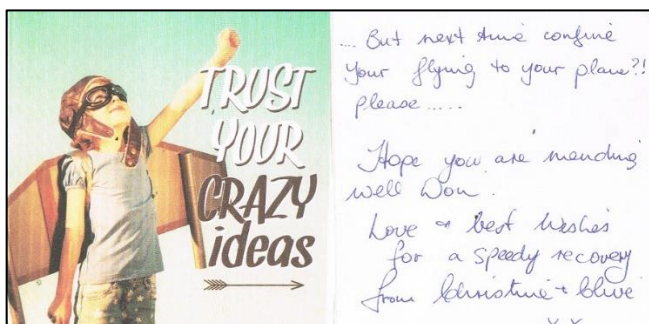 TRUST
YOUR
CRAZY
ideas
.... But next time confine
your flying to your plane?!
please.....
Hope you are mending
well Don.
Love & best wishes
for a speedy recovery
from Christine + Clive
x x